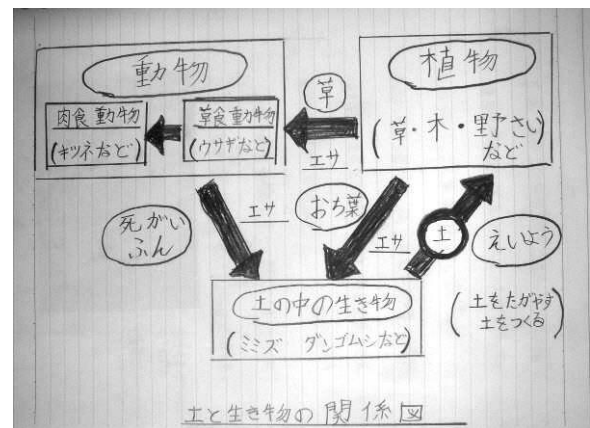 動物
肉食動物
(キツネなど)
草食動物
(ウサギなど)
草
エサ
植物
(草・木・野さい
など)
死がい
ふん
エサ
おち葉
エサ
土
えいよう
(土をたがやす
土をつくる)
土の中の生き物
(ミミズ ダンゴムシなど)
土と生き物の関係図